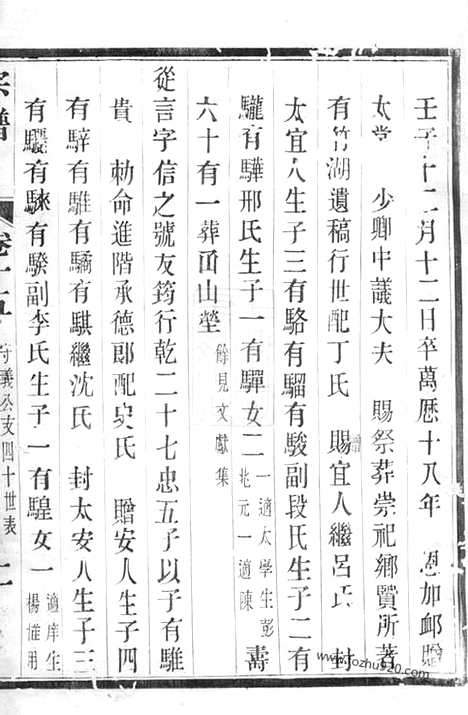 壬子十二月十二日卒萬歷十八年　恩加卹贈
太常　少卿中議大夫　賜祭葬崇祀鄉賢所著
有竹湖遺稿行世配丁氏　贈賜宜人繼呂氏　封
太宜人生子三有駱有騮有駿副段氏生子二有
驡有驊邢氏生子一有驒女二一適太學生彭兆元一適陳壽
六十有一葬西山塋餘見文獻集
從言字信之號友筠行乾二十七忠五子以子有騅
貴　勅命進階承德郎配吳氏　贈安人生子四
有騂有騅有驕有騏繼沈氏　封太安人生子三
有驋有騋有騤副李氏生子一有騜女一適庠生楊惟用
宗譜　卷十五　守義公支四十世表
www.jozhu920.com